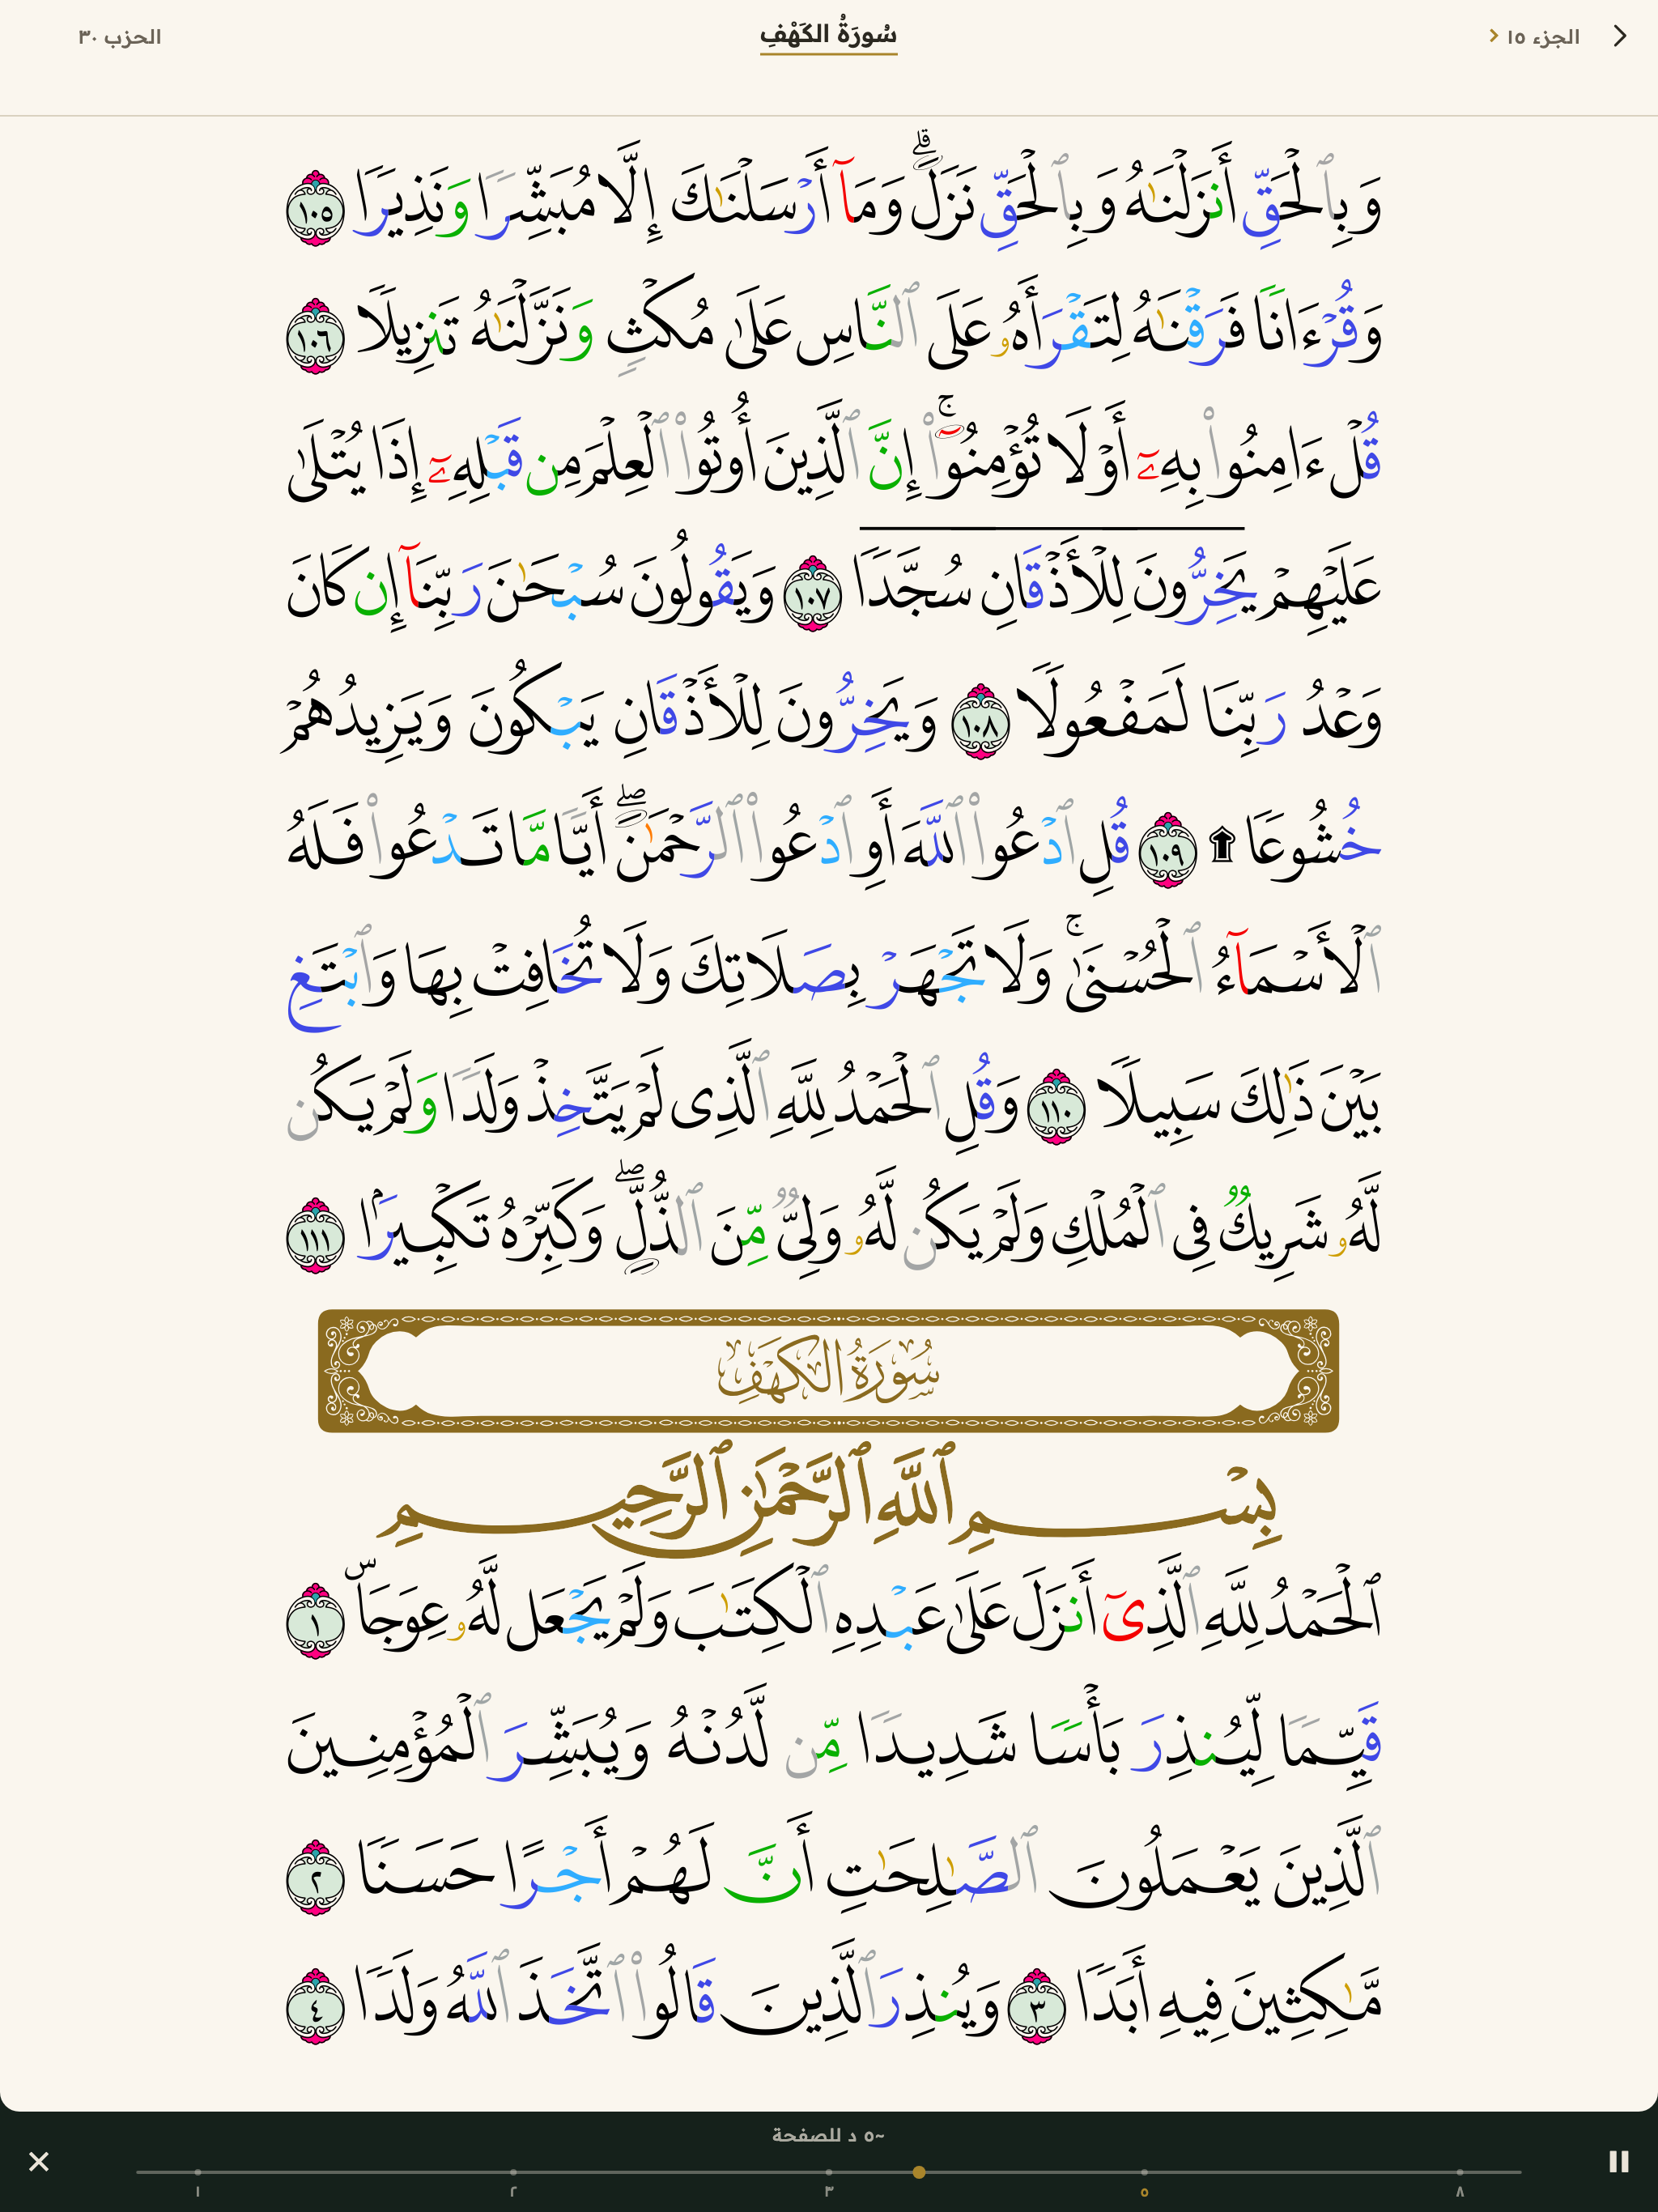 الجزء ١٥
سُورَةُ الكَهْفِ
الحزب ٣٠
وَبِٱلْحَقِّ أَنزَلْنَٰهُ وَبِٱلْحَقِّ نَزَلَ ۗ وَمَآ أَرْسَلْنَٰكَ إِلَّا مُبَشِّرًا وَنَذِيرًا ١٠٥
وَقُرْءَانًا فَرَقْنَٰهُ لِتَقْرَأَهُۥ عَلَى ٱلنَّاسِ عَلَىٰ مُكْثٍ وَنَزَّلْنَٰهُ تَنزِيلًا ١٠٦
قُلْ ءَامِنُوا۟ بِهِۦٓ أَوْ لَا تُؤْمِنُوٓا۟ ۚ إِنَّ ٱلَّذِينَ أُوتُوا۟ ٱلْعِلْمَ مِن قَبْلِهِۦٓ إِذَا يُتْلَىٰ
عَلَيْهِمْ يَخِرُّونَ لِلْأَذْقَانِ سُجَّدًا ١٠٧ وَيَقُولُونَ سُبْحَٰنَ رَبِّنَآ إِن كَانَ
وَعْدُ رَبِّنَا لَمَفْعُولًا ١٠٨ وَيَخِرُّونَ لِلْأَذْقَانِ يَبْكُونَ وَيَزِيدُهُمْ
خُشُوعًا ۩ ١٠٩ قُلِ ٱدْعُوا۟ ٱللَّهَ أَوِ ٱدْعُوا۟ ٱلرَّحْمَٰنَ ۖ أَيًّا مَّا تَدْعُوا۟ فَلَهُ
ٱلْأَسْمَآءُ ٱلْحُسْنَىٰ ۚ وَلَا تَجْهَرْ بِصَلَاتِكَ وَلَا تُخَافِتْ بِهَا وَٱبْتَغِ
بَيْنَ ذَٰلِكَ سَبِيلًا ١١٠ وَقُلِ ٱلْحَمْدُ لِلَّهِ ٱلَّذِى لَمْ يَتَّخِذْ وَلَدًا وَلَمْ يَكُن
لَّهُۥ شَرِيكٌ فِى ٱلْمُلْكِ وَلَمْ يَكُن لَّهُۥ وَلِىٌّ مِّنَ ٱلذُّلِّ ۖ وَكَبِّرْهُ تَكْبِيرًۢا ١١١
سُورَةُ الكَهْفِ
بِسْمِ ٱللَّهِ ٱلرَّحْمَٰنِ ٱلرَّحِيمِ
ٱلْحَمْدُ لِلَّهِ ٱلَّذِىٓ أَنزَلَ عَلَىٰ عَبْدِهِ ٱلْكِتَٰبَ وَلَمْ يَجْعَل لَّهُۥ عِوَجَاۜ ١
قَيِّمًا لِّيُنذِرَ بَأْسًا شَدِيدًا مِّن لَّدُنْهُ وَيُبَشِّرَ ٱلْمُؤْمِنِينَ
ٱلَّذِينَ يَعْمَلُونَ ٱلصَّٰلِحَٰتِ أَنَّ لَهُمْ أَجْرًا حَسَنًا ٢
مَّٰكِثِينَ فِيهِ أَبَدًا ٣ وَيُنذِرَ ٱلَّذِينَ قَالُوا۟ ٱتَّخَذَ ٱللَّهُ وَلَدًا ٤
~٥ د للصفحة
١ ٢ ٣ ٥ ٨